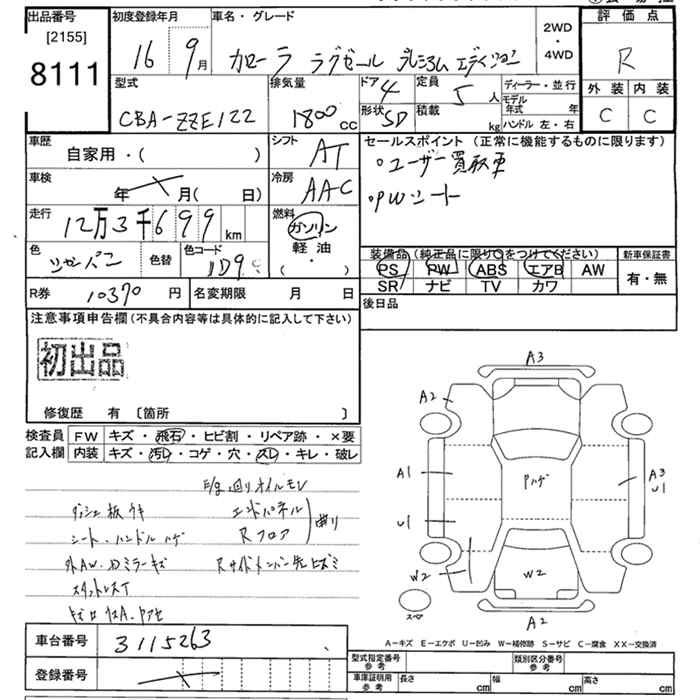 出品番号 初度登録年月 車名・グレード 2WD・4WD 評価点
[2155]
8111
16年 9月 カローラ ラグゼール プレミアム エディション R
型式 排気量 ドア 4 定員 5人 ディーラー・並行
CBA-ZZE122 1800cc 形状 SD 積載 kg モデル年式 年
ハンドル 左・右
外装 内装
C C
車歴 シフト セールスポイント (正常に機能するものに限ります)
自家用・( ) AT ・ユーザー買取車
車検 冷房 ・PWシート
年 月( 日) AAC
走行 燃料 装備品(純正品に限り○をつけてください) 新車保証書
12万3千699km ガソリン PS PW ABS エアB AW 有・無
色 色替 色コード 軽油・ SR ナビ TV カワ
シャンパン 1D9 ( )
R券 10370円 名変期限 月 日 後日品
注意事項申告欄(不具合内容等は具体的に記入して下さい)
初出品
修復歴 有 〔箇所 〕
検査員 FW キズ・飛石・ヒビ割・リペア跡・×要
記入欄 内装 キズ・汚レ・コゲ・穴・スレ・キレ・破レ
E/g廻りオイルモレ
ダッシュ板ウキ エンドパネル
シート・ハンドルハゲ Rフロア 曲り
外AW.Dミラーキズ
スタッドレスT
A3
A2
A1 Pハゲ A3
U1
U1
W2 W2
スペア
A2
車台番号 3115263
登録番号
A－キズ E－エクボ U－凹み W－補修跡 S－サビ C－腐食 XX－交換済
型式指定番号 参考 類別区分番号 参考
車庫証明用 参考 長さ cm 幅 cm 高さ cm